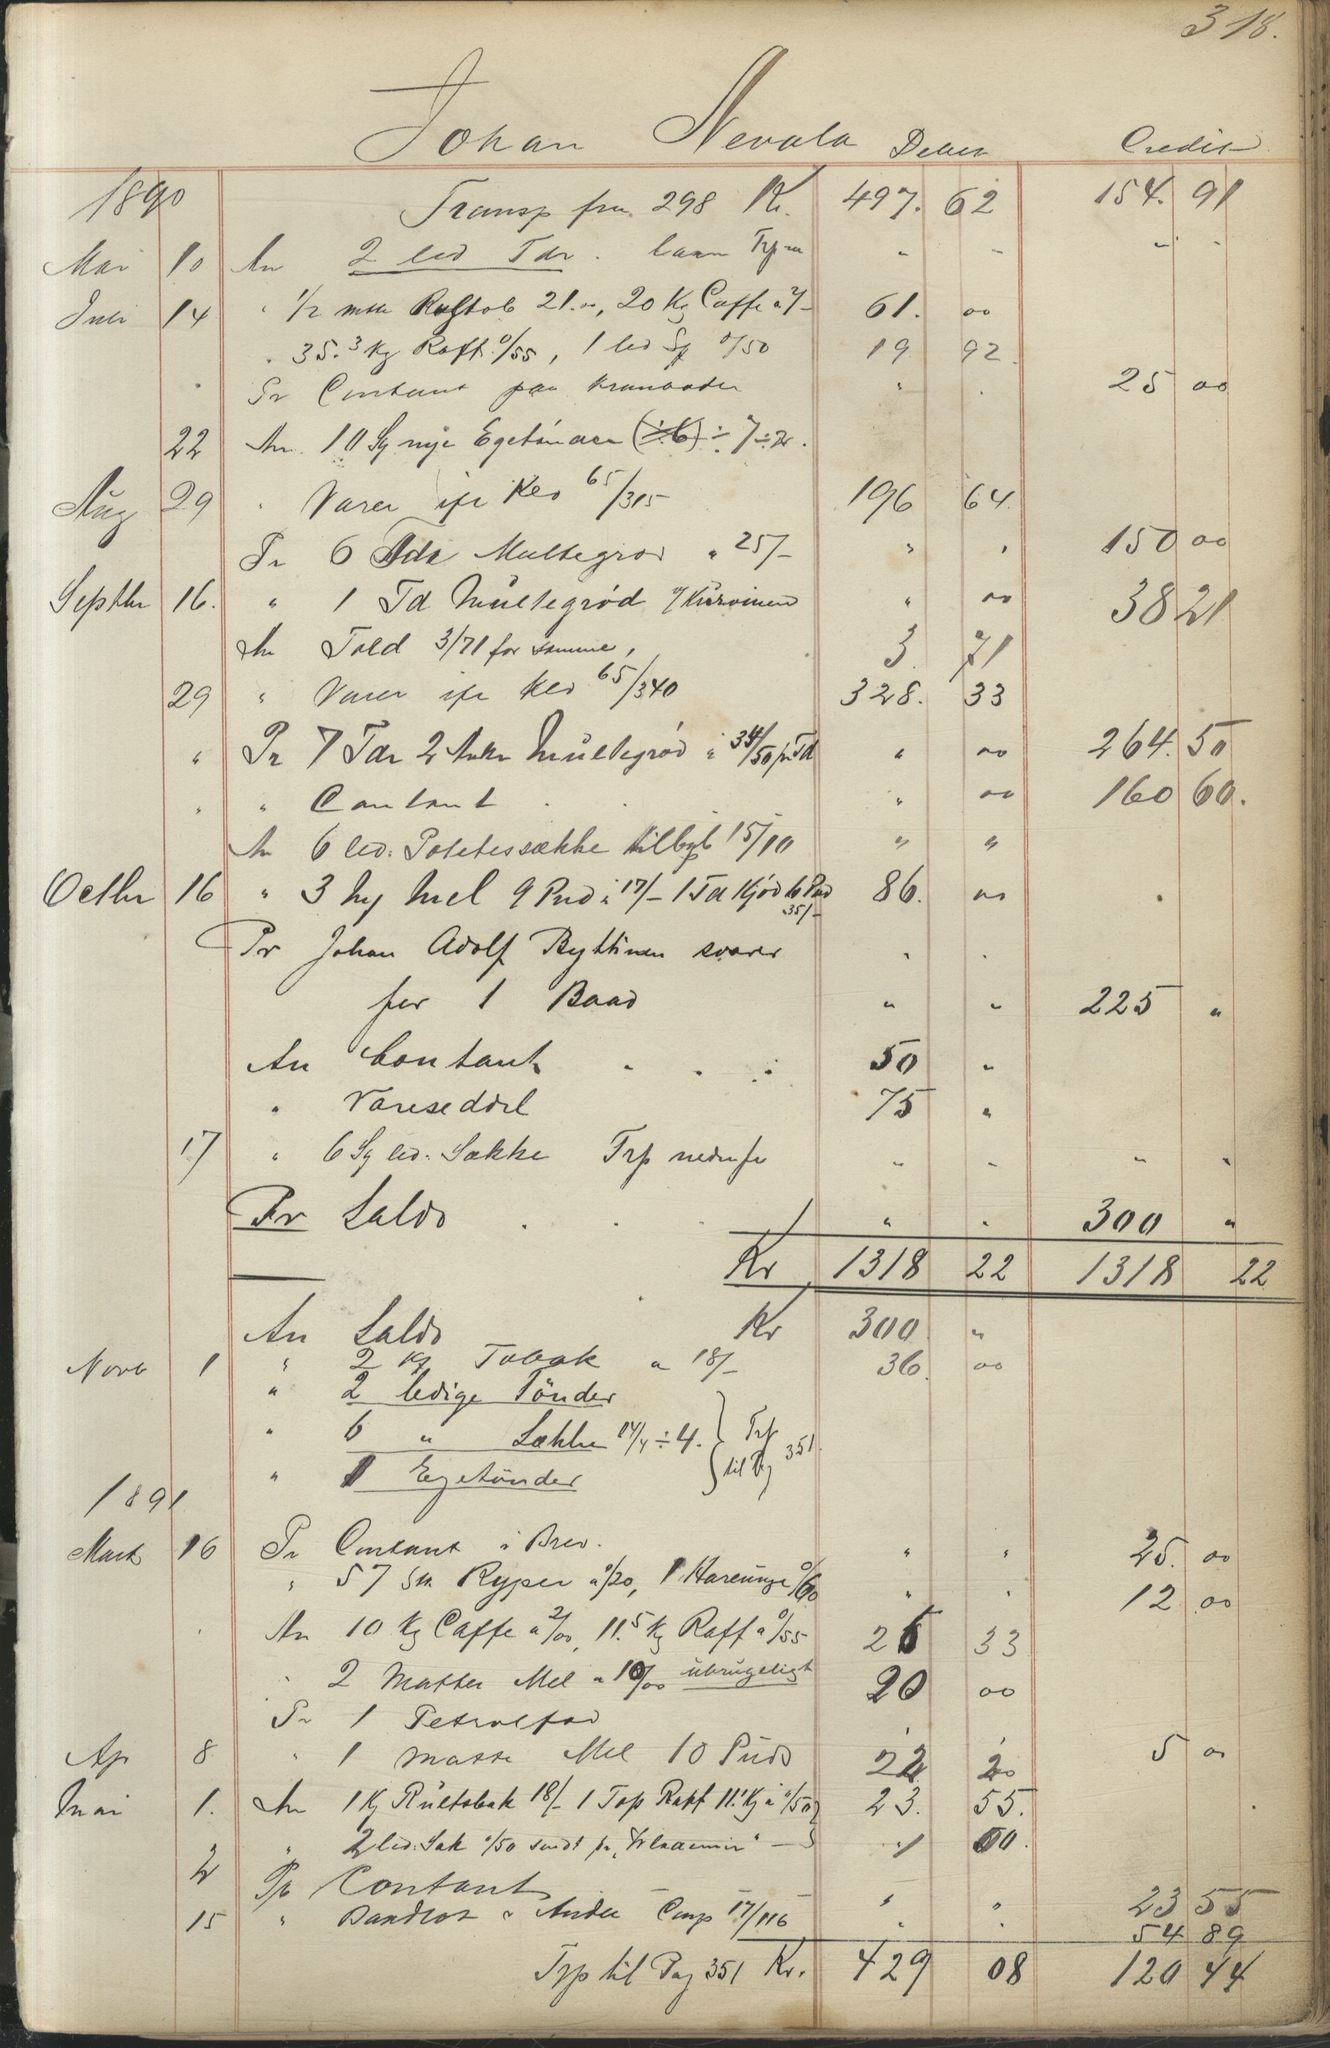 318.
Johan Nevala Debet Credit
1890 Transp fra 298 Kr. 497. 62 154. 91
Mai 10 An 2 led Tdr. laan Trp " - " -
Juli 14 " 1/2 mtt 21.00, 20 Kg Caffe a 2/- 61. 00
" 35.3 Kg Raff. 0/55, 1 led Sg 0/50 19 92
" Pr Contant paa " . 25 00
22 An 10 Sg nye Egetönder (÷6) ÷ 7 ÷ 2.
Aug 29 " Varer ifr Kld 65/315 196 64
Pr 6 Tdr Multegrød a 25/- " " 150 00
Septbr 16. " 1 Td Multegrød " 00 38 21
An Told 3/71 for samme, 3. 71
29 " Varer ifr Kld 65/340 328. 33
" Pr 7 Tdr 2 Ankr Multegrød a 34/50 pr Td " 00 264. 50
" " Contant . . " 00 160 60.
An 6 led: Potetessække 15/10 " "
Octbr 16 " 3 Mel 9 Pud a 17/- 1 Td Kjød 10 Pud 35/- 86. 00
Pr Johan Adolf Byttinen svarer " .
for 1 Baad " " 225 "
An Contant . . . 50 "
" Vareseddel 75 "
17 " 6 Sg led. Sække Trp " " " "
Pr Saldo . . . " " 300 "
Kr 1318 22 1318 22
An Saldo Kr 300 "
Novb 1 " 2 Kg Tobak a 18/- 36. 00
" 2 ledige Tönder
" 6 " Sække 14/4 ÷ 4. } Trp
" 1 Egetönder til Pag 351.
1891
Mart 16 Pr Contant i Brev. " " 25. 00
" 57 Stk Ryper a 0/20, 1 0/60 " " 12 00
" An 10 Kg Caffe a 2/00, 11.5 Kg Raff a 0/55 26 33
" 2 Matter Mel a 10/00 ubrugeligt 20 00
Pr 1 Petrolfad " " 5 00
Ap 8 " 1 Matte Mel 10 Pud 22 20
Mai 1. An 1 Kg Rultobak 18/- 1 Top Raff 11.1 Kg a 0/50 23. 55.
" 2 led. Sæk 0/50 sendt pr, "Wladimir" - 1 00.
2 Pr Contant " " 23 55
15 " & Comp 17/116 " " 54 89
Trp til Pag 351 Kr. 429 08 120 44